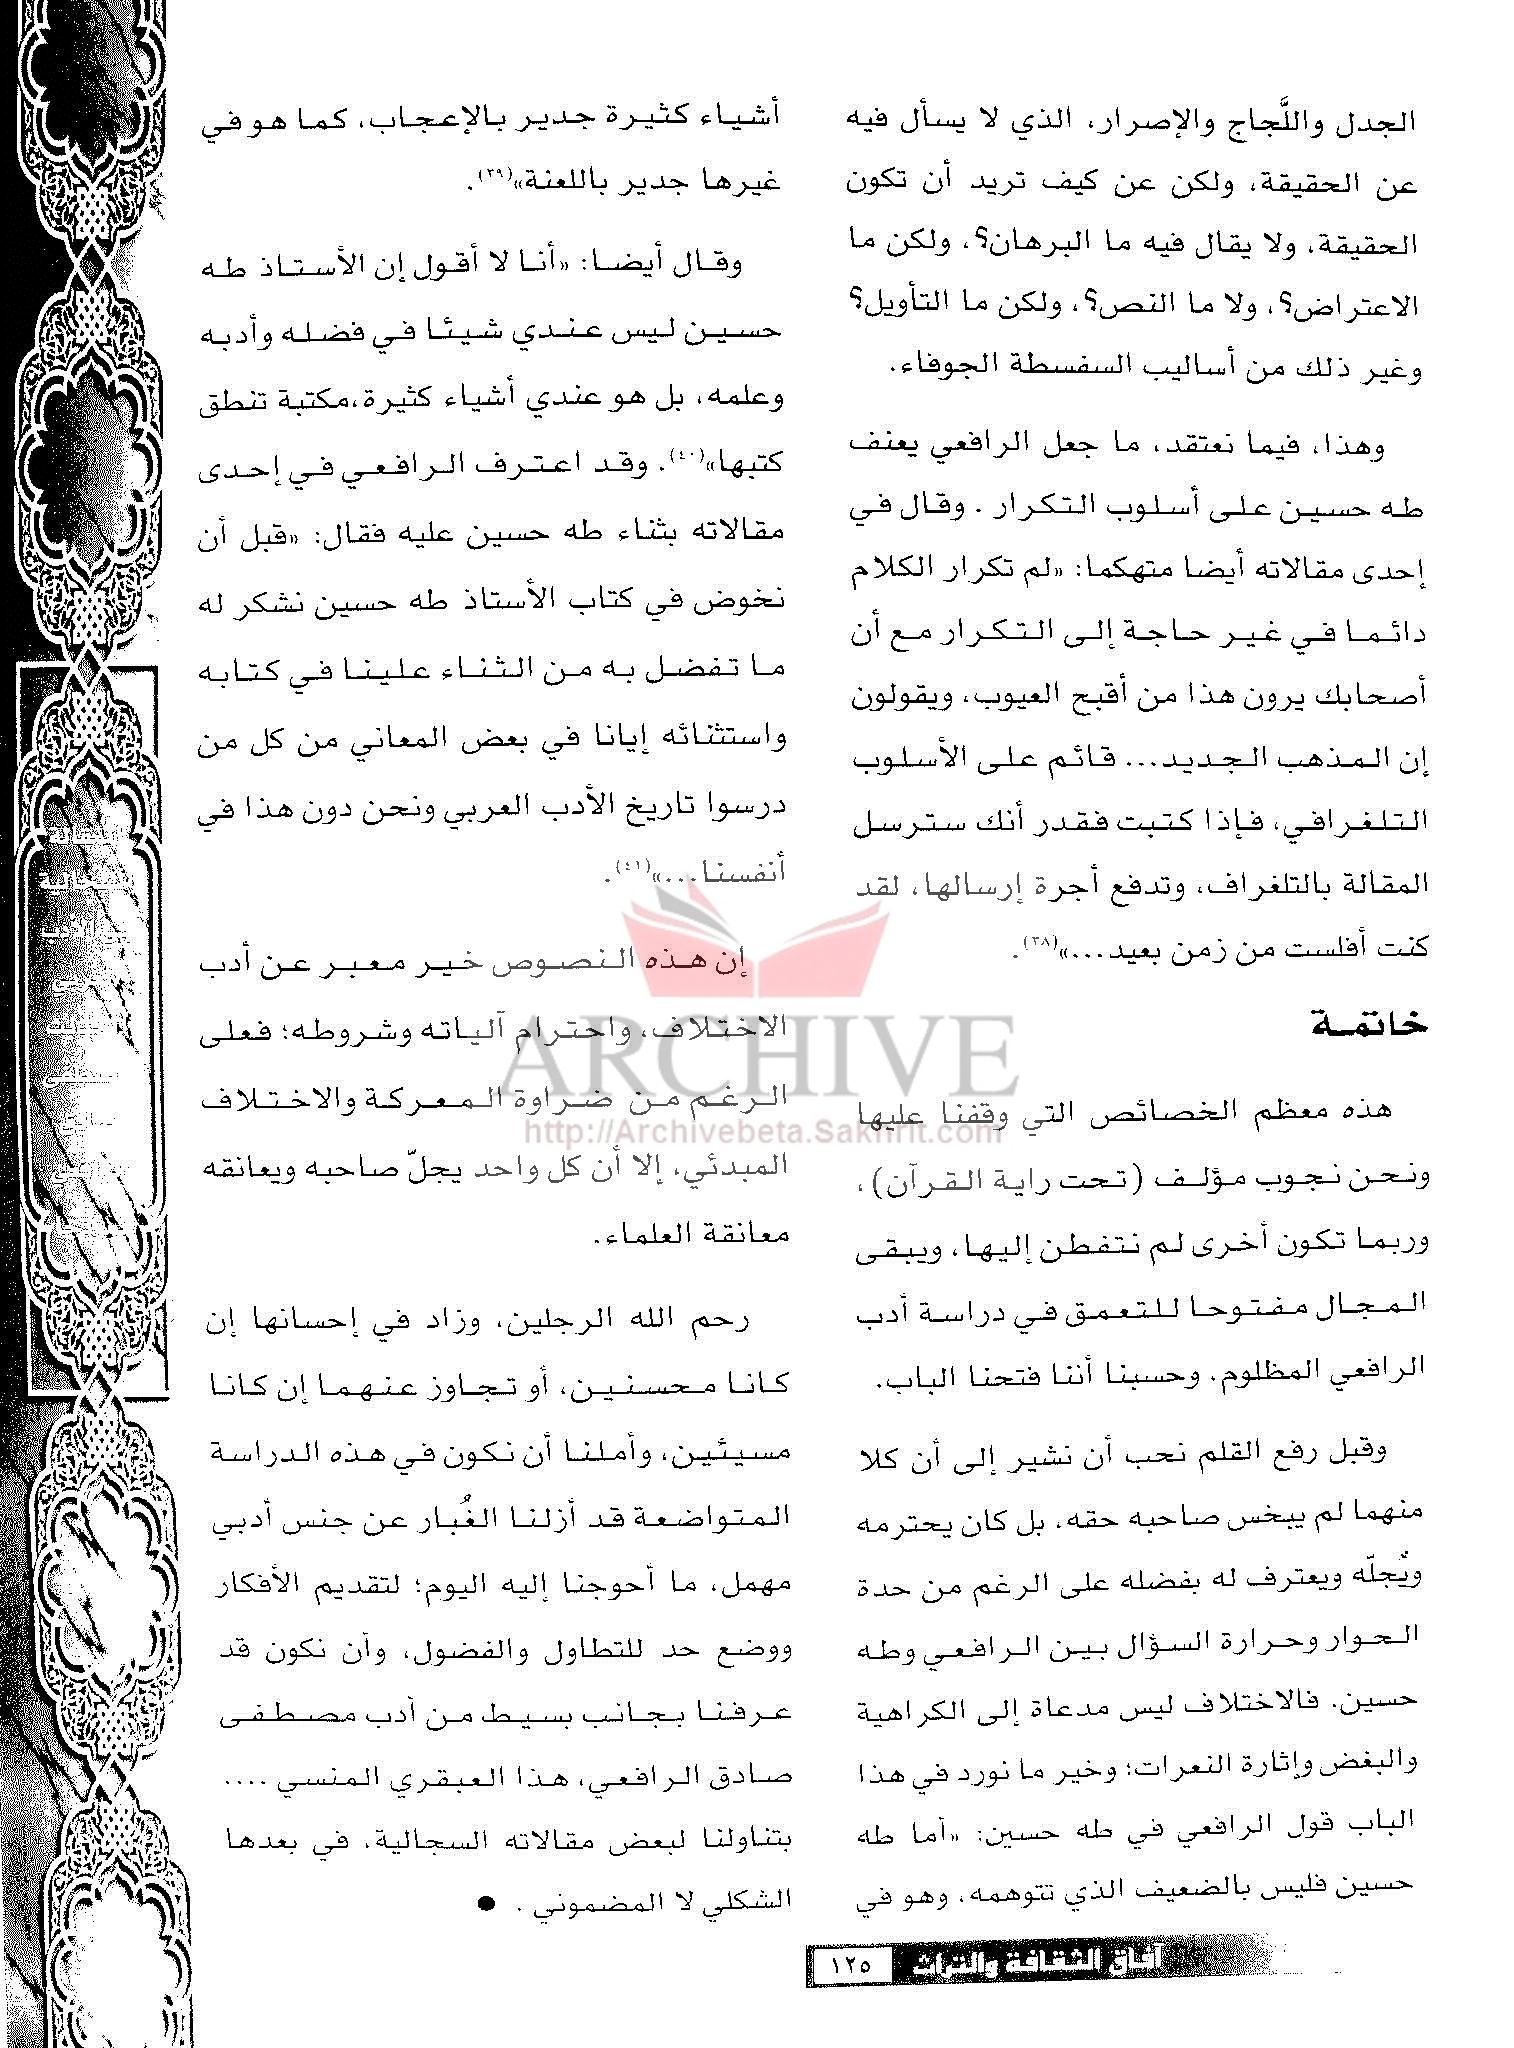 الجدل واللَّجاج والإصرار، الذي لا يسأل فيه
عن الحقيقة، ولكن عن كيف تريد أن تكون
الحقيقة، ولا يقال فيه ما البرهان؟، ولكن ما
الاعتراض؟، ولا ما النص؟، ولكن ما التأويل؟
وغير ذلك من أساليب السفسطة الجوفاء.
وهذا، فيما نعتقد، ما جعل الرافعي يعنف
طه حسين على أسلوب التكرار . وقال في
إحدى مقالاته أيضا متهكما: «لم تكرار الكلام
دائما في غير حاجة إلى التكرار مع أن
أصحابك يرون هذا من أقبح العيوب، ويقولون
إن المذهب الجديد... قائم على الأسلوب
التلغرافي، فإذا كتبت فقدر أنك سترسل
المقالة بالتلغراف، وتدفع أجرة إرسالها، لقد
كنت أفلست من زمن بعيد...»(٣٨).
خاتمة
هذه معظم الخصائص التي وقفنا عليها
ونحن نجوب مؤلف (تحت راية القرآن)،
وربما تكون أخرى لم نتفطن إليها، ويبقى
المجال مفتوحا للتعمق في دراسة أدب
الرافعي المظلوم. وحسبنا أننا فتحنا الباب.
وقبل رفع القلم نحب أن نشير إلى أن كلا
منهما لم يبخس صاحبه حقه، بل كان يحترمه
ويُجلّه ويعترف له بفضله على الرغم من حدة
الحوار وحرارة السؤال بين الرافعي وطه
حسين. فالاختلاف ليس مدعاة إلى الكراهية
والبغض وإثارة النعرات؛ وخير ما نورد في هذا
الباب قول الرافعي في طه حسين: «أما طه
حسين فليس بالضعيف الذي تتوهمه، وهو في
أشياء كثيرة جدير بالإعجاب، كما هو في
غيرها جدير باللعنة»(٣٩).
وقال أيضا: «أنا لا أقول إن الأستاذ طه
حسين ليس عندي شيئا في فضله وأدبه
وعلمه، بل هو عندي أشياء كثيرة،مكتبة تنطق
كتبها»(٤٠). وقد اعترف الرافعي في إحدى
مقالاته بثناء طه حسين عليه فقال: «قبل أن
نخوض في كتاب الأستاذ طه حسين نشكر له
ما تفضل به من الثناء علينا في كتابه
واستثنائه إيانا في بعض المعاني من كل من
درسوا تاريخ الأدب العربي ونحن دون هذا في
أنفسنا...»(٤١).
إن هذه النصوص خير معبر عن أدب
الاختلاف، واحترام آلياته وشروطه؛ فعلى
الرغم من ضراوة المعركة والاختلاف
المبدئي، إلا أن كل واحد يجلّ صاحبه ويعانقه
معانقة العلماء.
رحم الله الرجلين، وزاد في إحسانها إن
كانا محسنين، أو تجاوز عنهما إن كانا
مسيئين، وأملنا أن نكون في هذه الدراسة
المتواضعة قد أزلنا الغُبار عن جنس أدبي
مهمل، ما أحوجنا إليه اليوم؛ لتقديم الأفكار
ووضع حد للتطاول والفضول، وأن نكون قد
عرفنا بجانب بسيط من أدب مصطفى
صادق الرافعي، هذا العبقري المنسي ....
بتناولنا لبعض مقالاته السجالية، في بعدها
الشكلي لا المضموني . ●
ARCHIVE
http://Archivebeta.Sakhrit.com
آفاق الثقافة والتراث ١٢٥